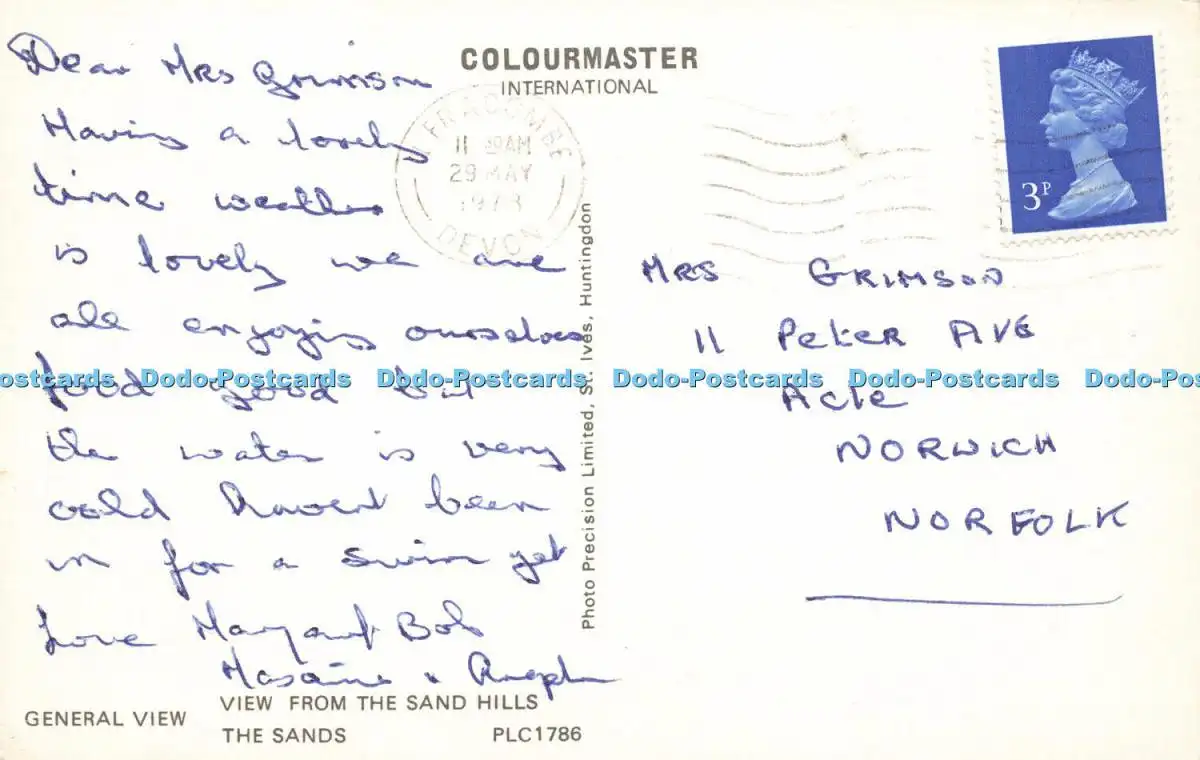 Dear Mrs Grimson
Having a lovely
time weather
is lovely we are
all enjoying ourselves
food good but
the water is very
cold Havent been
in for a swim yet
Love Margaret Bob
Maxine &
COLOURMASTER
INTERNATIONAL
ILFRACOMBE
11 AM
29 MAY
1973
DEVON
3P
Photo Precision Limited, St. Ives, Huntingdon
MRS GRIMSON
11 Peter AVE
Acle
NORWICH
NORFOLK
ostcards Dodo-Postcards Dodo-Postcards Dodo-Postcards Dodo-Postcards Dodo-Pos
GENERAL VIEW
VIEW FROM THE SAND HILLS
THE SANDS
PLC1786